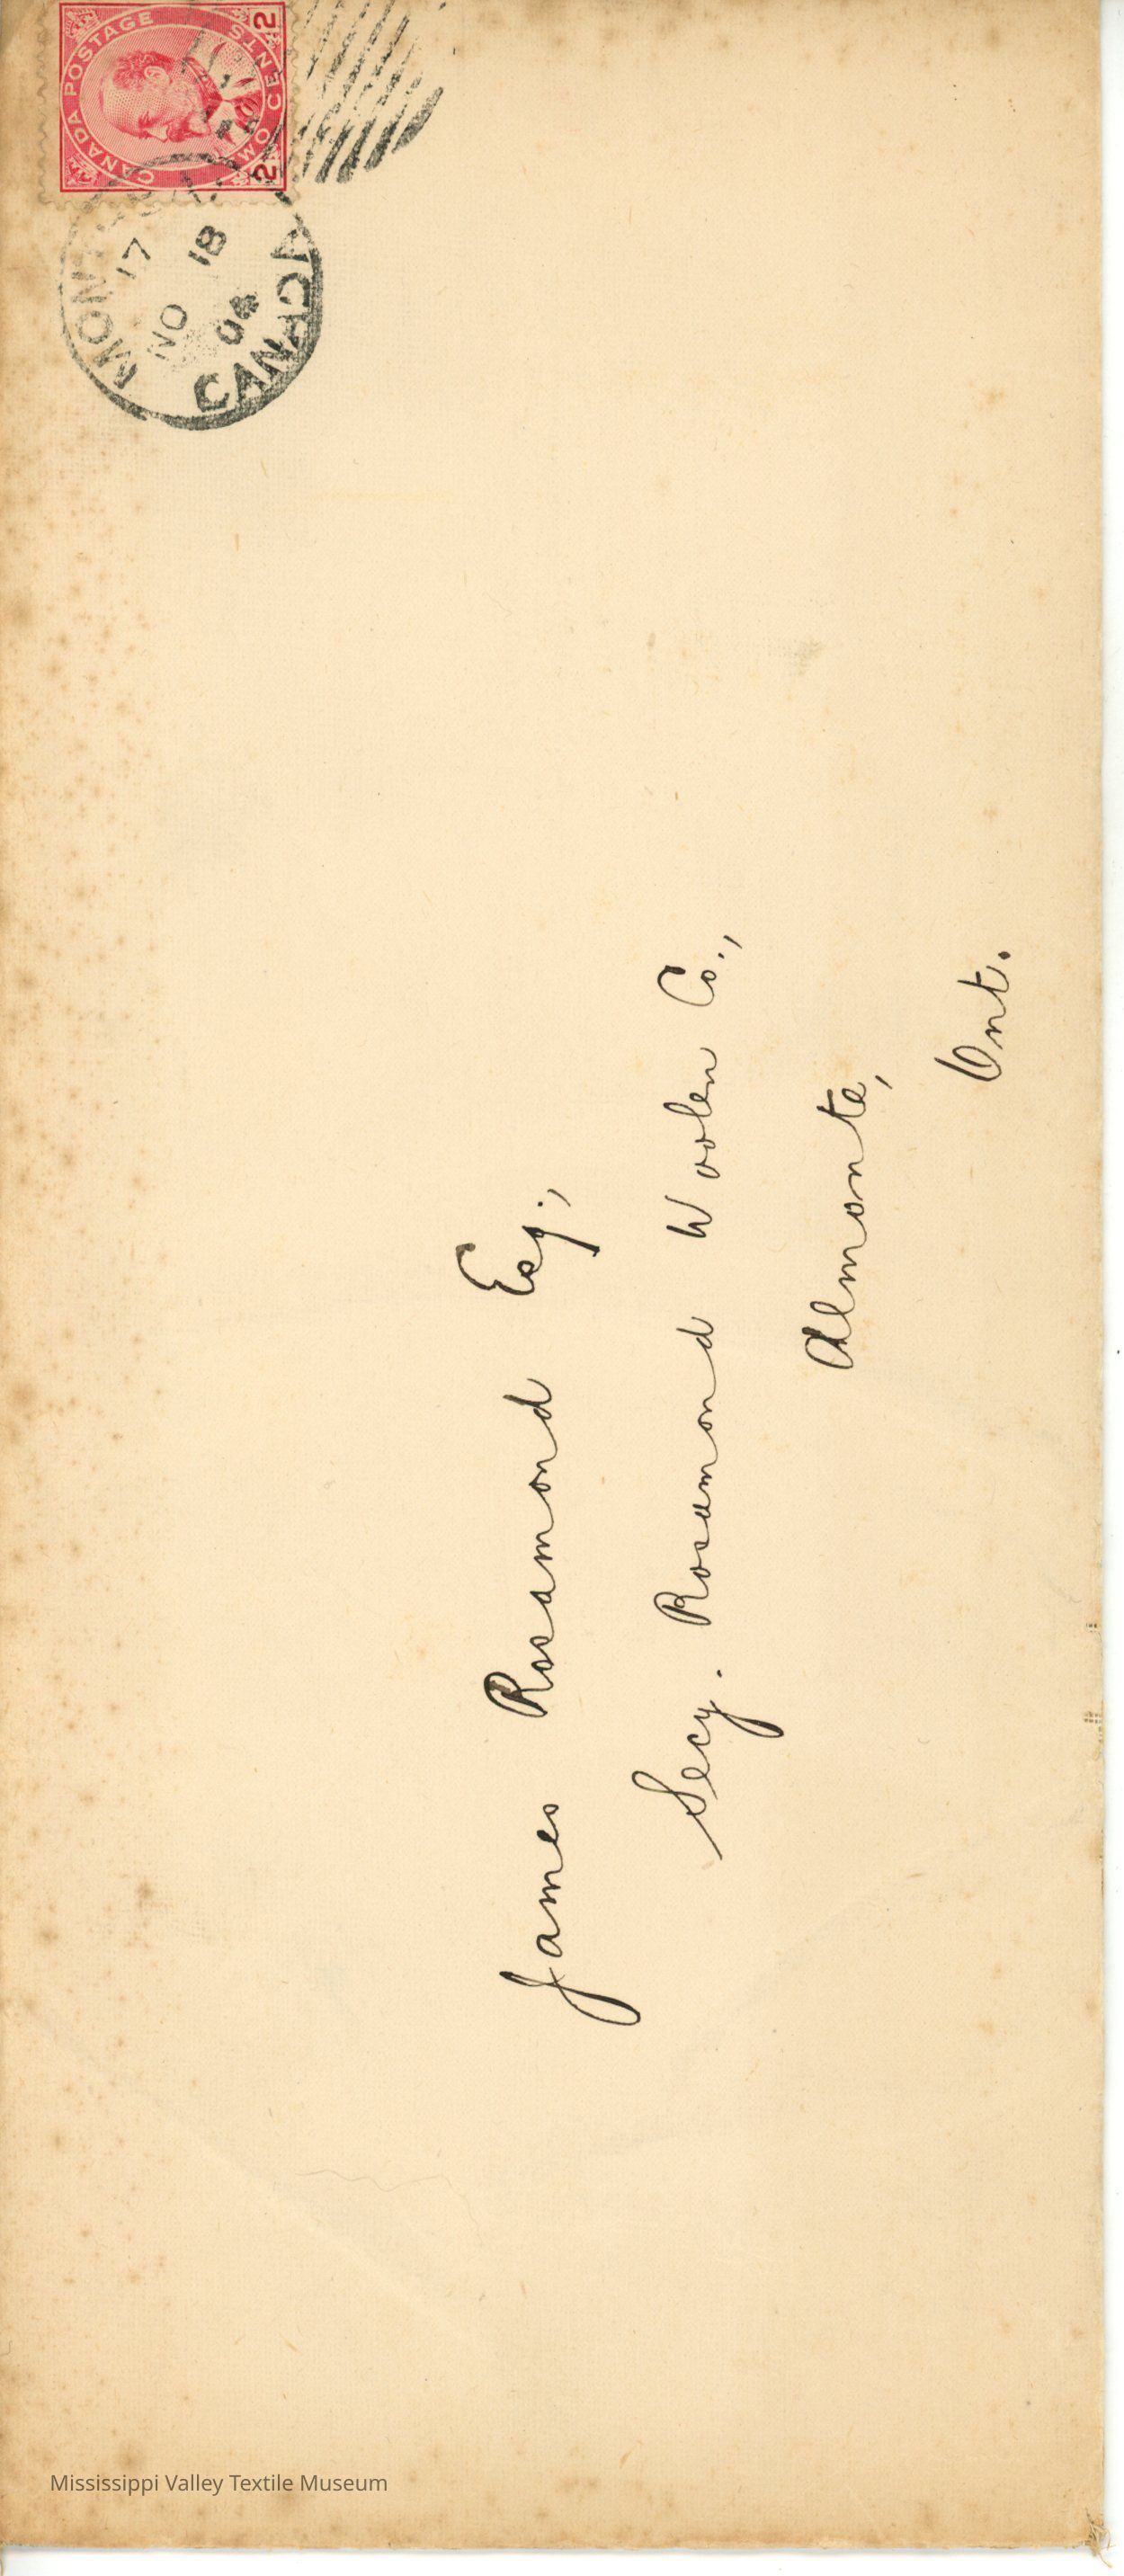 CANADA POSTAGE
TWO CENTS
2 2
MONTREAL
17 18
NO 04
CANADA
James Rosamond Esq.,
Secy. Rosamond Woolen Co.,
Almonte,
Ont.
Mississippi Valley Textile Museum